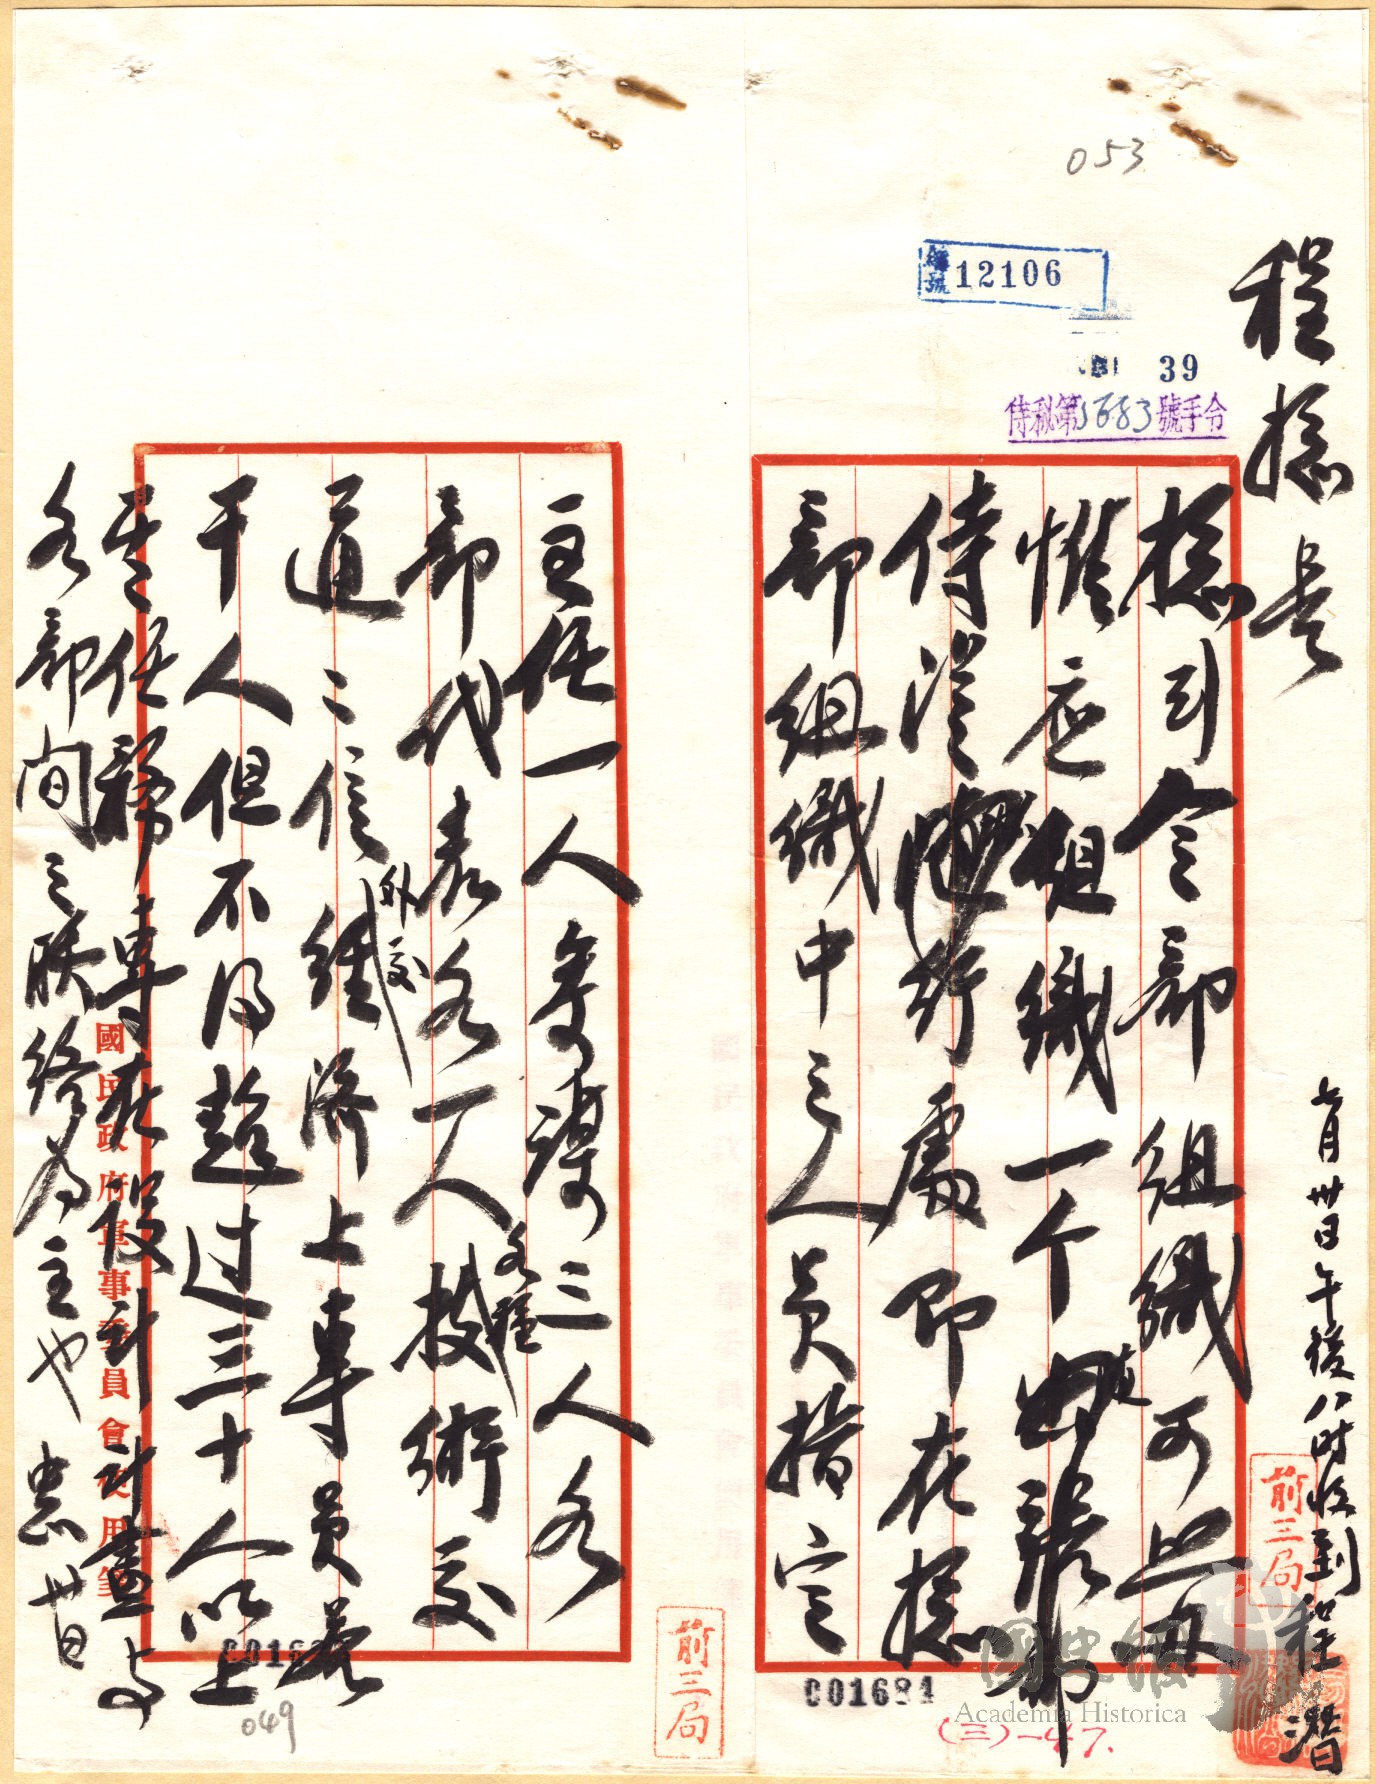 053
編號 12106
39
侍秘第3683號手令
程總長
總司令部組織可照舊
惟應組織一个
侍從
行處即在總
部組織中之人員指定
主任一人參謀三人各
部代表各一人各種技術交
通二信經濟上專員若
外交
干人但不得超過三十人以上
其任務專在設計計畫與
各部間之聯絡為主也 中正 卅日
七月卅日午後八時收到 程潛
前三局
前三局
國民政府軍事委員會用箋
001684
0016
(三)-47.
049
國史館
Academia Historica